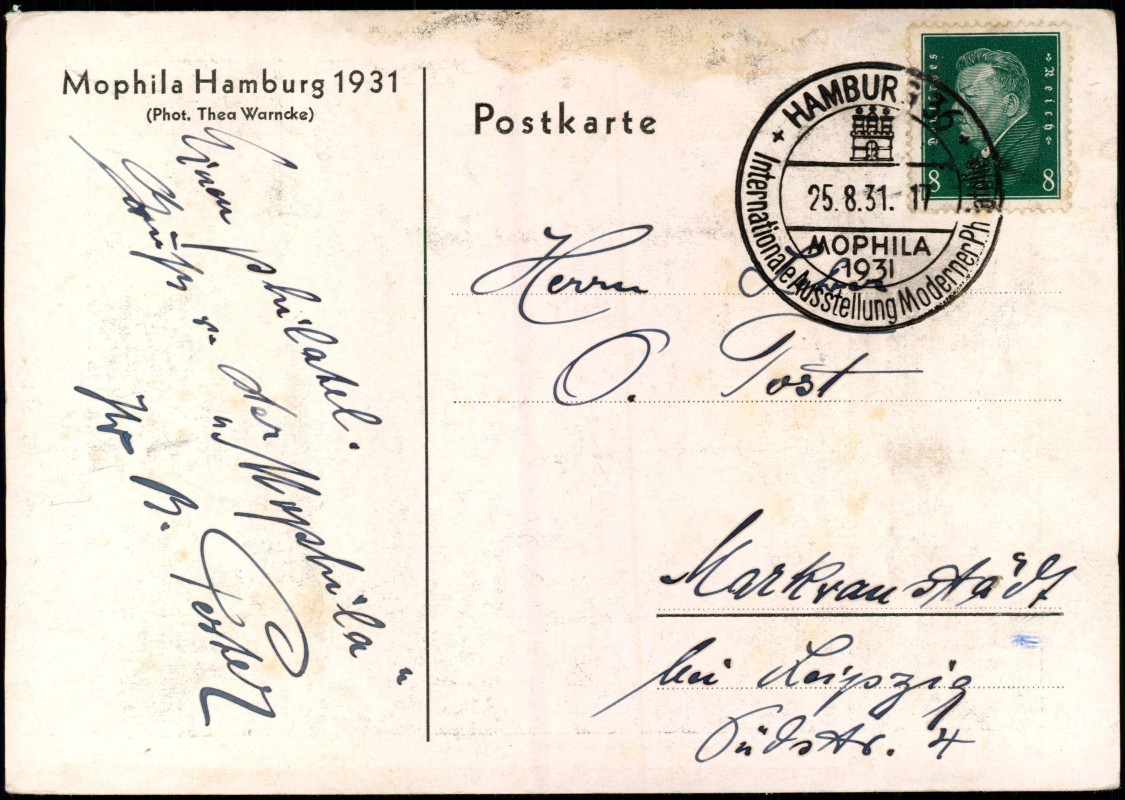 Mophila Hamburg 1931
(Phot. Thea Warncke)
Einen philatel.
Gruß v. der „Mophila“
Ihr B.
Postkarte
HAMBUR 36
25.8.31. 17
MOPHILA
1931
Internationale Ausstellung Moderner Phi
Deutsches Reich
8 8
Herrn
O. Tost
Markranstädt
bei Leipzig
Südstr. 4